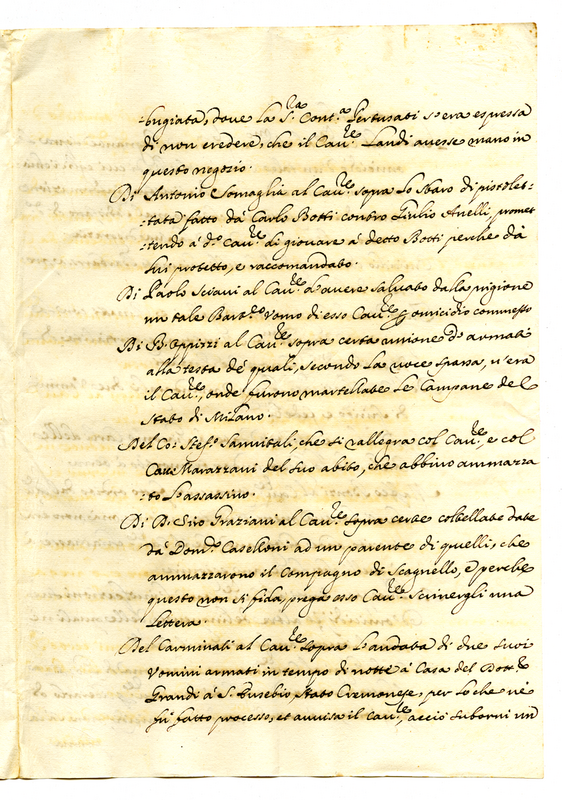 -bugiata, dove La S.ra Cont.a Pertusati s'era espressa
di non credere, che il Cau.re Landi auesse mano in
questo negozio.
Di Antonio Somaglia al Cau.re sopra Lo sbaro di pistolet-
-tata fatto dà Carlo Botti contro Giulio Anelli, promet
-tendo à d.o Cau.re di giouare à detto Botti perche dà
Lui protetto, e raccomandato.
Di Paolo Sciaui al Cau.re d'auere saluato dalla prigione
un tale Bart.eo Vomo di esso Cau.re omicidio commesso
Di B. Oppizzi al Cau.re sopra certa unione d'armati
alla testa de quali, secondo La uoce sparsa, u'era
il Cau.re, onde furono martellate Le Campane del
Stato di Milano.
Del Co: Stef.o Sanuitali, che si rallegra col Cau.re, e col
Cau.re Marazzani del suo abito, che abbino ammazza
-to L'assassino.
Di B. Siro Graziani al Cau.re sopra certe coltellate date
dà Dom.co Caselloni ad un parente di quelli, che
ammazzarono il Compagno di Scagnello, e perche
questo non si fida, prega esso Cau.re Scriuergli una
Lettera.
Del Carminati al Cau.re sopra L'andata di due suoi
Vomini armati in tempo di notte à Casa del Dott.re
Grandi à S. Eusebio, Stato Cremonese, per Lo che nè
fù fatto processo, et auuisa il Cau.re, acciò suborni un